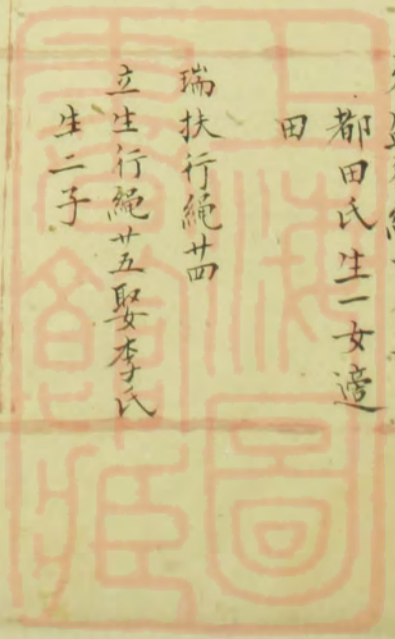 都田氏生一女適
田
瑞扶行繩廿四
立生行繩廿五娶李氏
生二子
上海圖書館藏